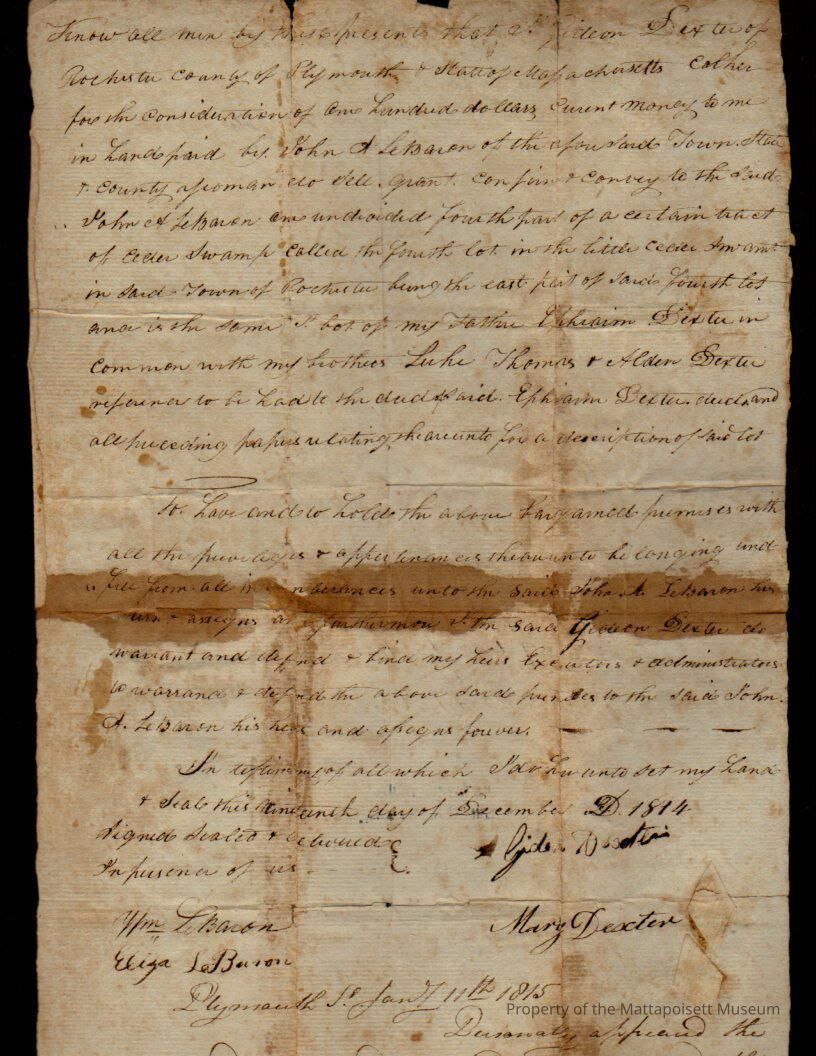 Know all men by these presents that I Gideon Dexter of
Rochester County of Plymouth & State of Massachusetts
for the consideration of One hundred dollars Curent money to me
in hand paid by John A LeBaron of the afore said Town. State
& County do Sell. grant. & convey to the said
John A LeBaron one undivided fourth part of a certain tract
of Ceder Swamp Called the fourth lot in the little Ceder Swamp
in said Town of Rochester being the east part of said fourth lot
and is the same I bot of my Father Ephraim Dexter in
Common with my brothers Luke Thomas & Alden Dexter
referance to be had to the deed said. Ephraim Dexter. deed. and
all preceding papers relating theareunto for a description of said lot
To have and to hold the above bargained premises with
all the priveleges & appertenances theareunto belonging and
free from all incumberances unto the said John A. LeBaron his
heirs & assigns and furthermore I. the said Gideon Dexter do
warrant and defend & bind my heirs Executors & administrators
to warrand & defend the above said premises to the said John.
A. LeBaron his heirs and assigns forever.
In testimony of all which I do hereunto set my hand
& Seal this day of December D. 1814
Signed Sealed & delivered
In presence of us
Gideon Dexter
Wm LeBaron
Mary Dexter
Eliza LeBaron
Plymouth Ss Jany 11th 1815
Personally appeared the
Property of the Mattapoisett Museum